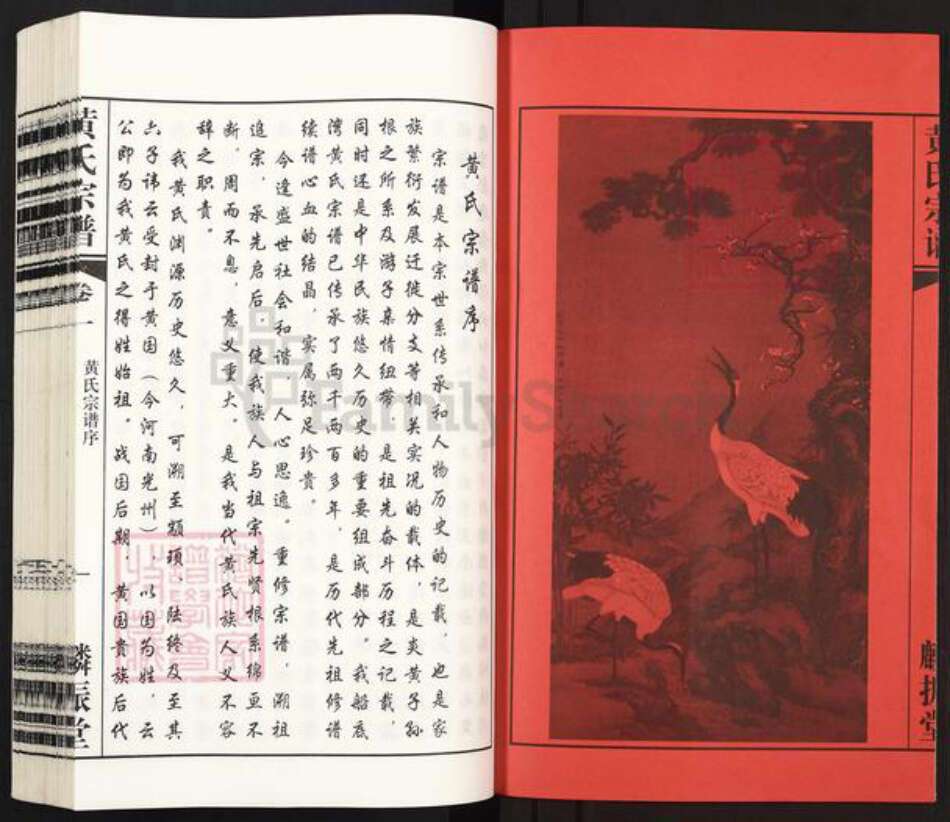 黄氏宗谱序
宗谱是本宗世系传承和人物历史的记载，也是家
族繁衍发展迁徙分支等相关实况的载体，是炎黄子孙
根之所系及游子亲情纽带，是祖先奋斗历程之记载，
同时还是中华民族悠久历史的重要组成部分。我船底
湾黄氏宗谱已传承了两千两百多年，是历代先祖修谱
续谱心血的结晶，实属弥足珍贵。
今逢盛世社会和谐，人心思逸。重修宗谱，溯祖
追宗，承先启后，使我族人与祖宗先贤根系绵亘不
断，周而不息，意义重大，是我当代黄氏族人义不容
辞之职责。
我黄氏渊源历史悠久，可溯至颛顼，陆终及至其
六子讳云受封于黄国（今河南光州），以国为姓，云
公即为我黄氏之得姓始祖。战国后期，黄国贵族后代
黄氏宗谱
卷一
黄氏宗谱序
一
麟振堂
黄氏宗谱
麟振堂
FamilySearch